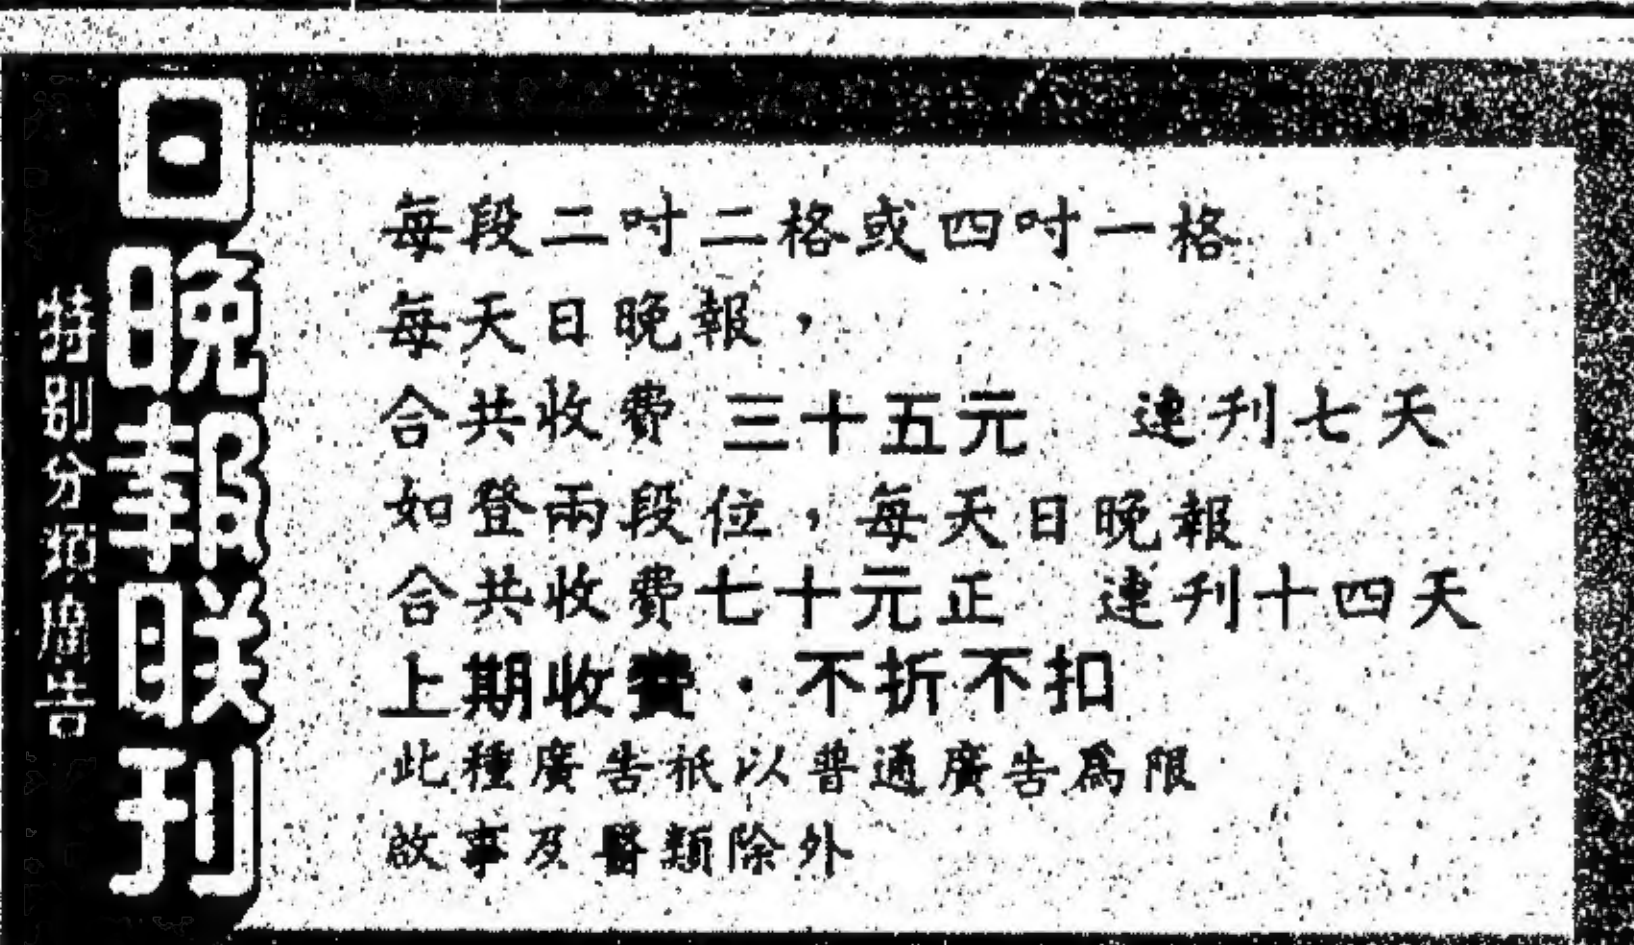 日晚報联刊
特别分類廣告
每段二吋二格或四吋一格
每天日晚報，
合共收費三十五元　連刋七天
如登兩段位，每天日晚報
合共收費七十元正　連刋十四天
上期收費・不折不扣
此種廣告祇以普通廣告爲限
啟事及醫類除外